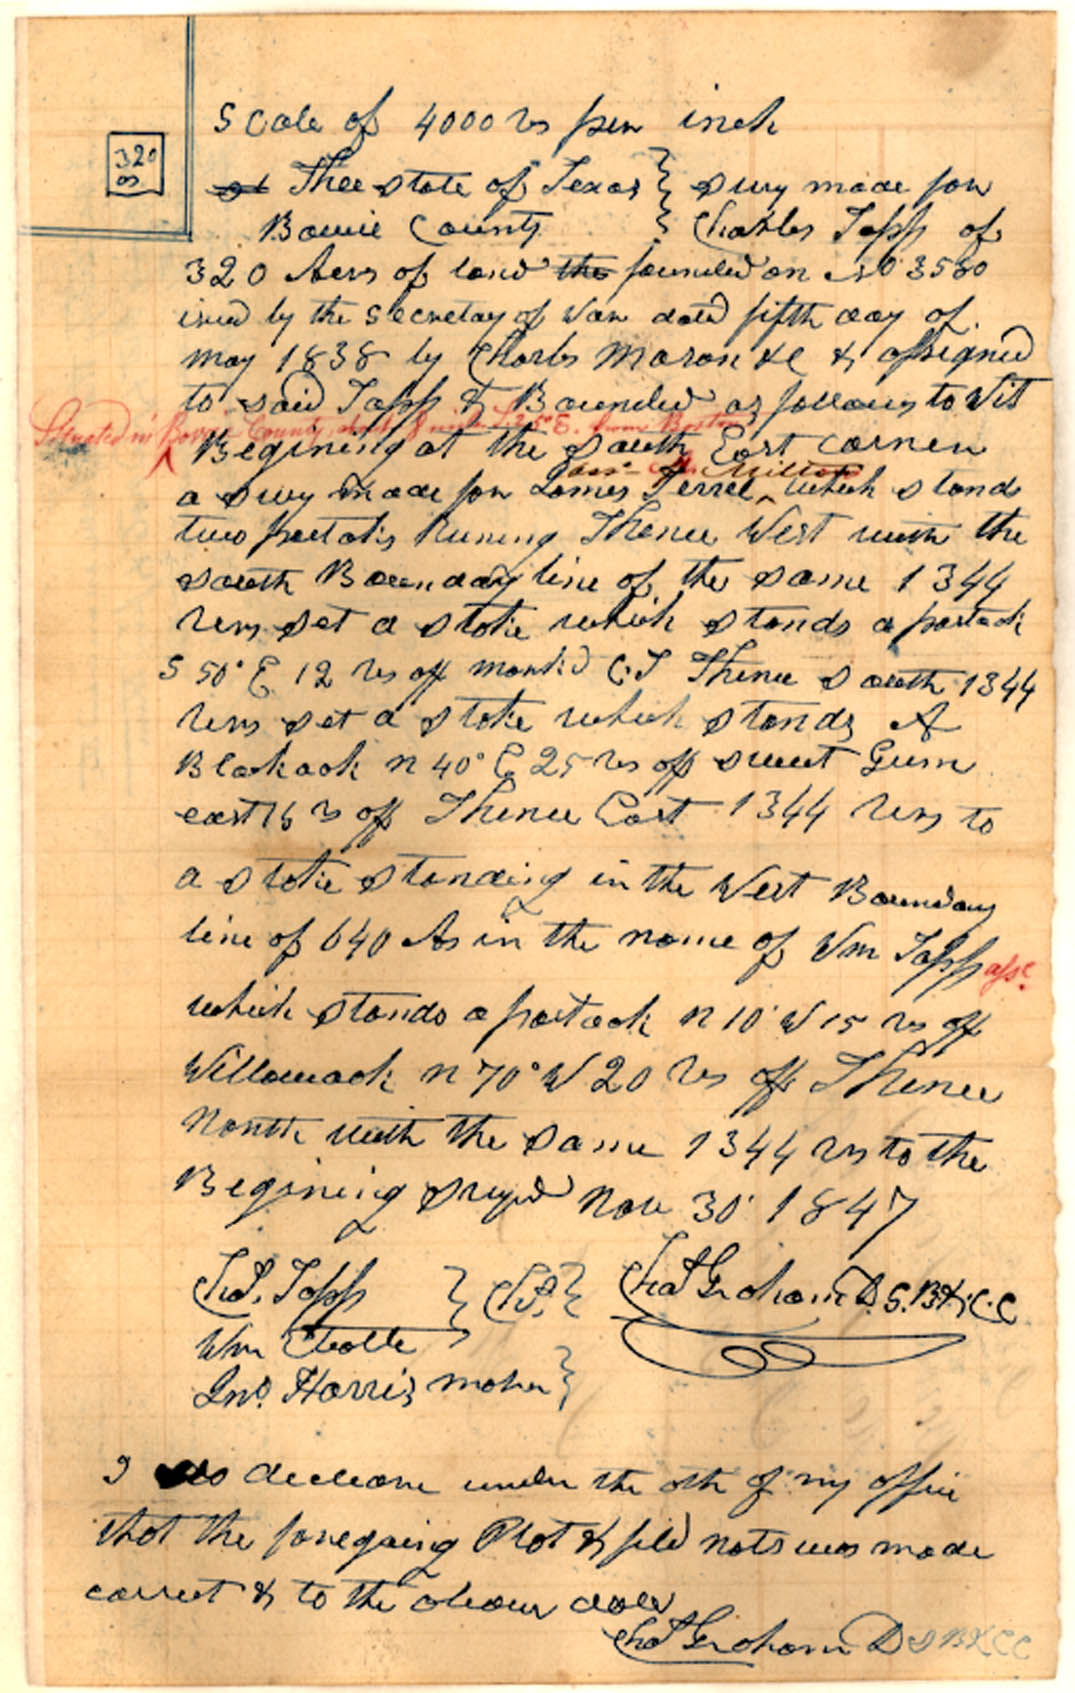 Scale of 4000 vs per inch
320
as
Thee state of Texas } Survy made for
Bowie County } Charles Tapp of
320 Acrs of land the founded on No 3580
isued by the Secretay of War dated fifth day of
May 1838 by Charls Mason & assigned
to said Tapp & Bounded as follows to Wit
Situated in Bowie County, about 8 miles E. from Boston
Begining at the South East corner
asse
a survy made for James Ferrel, which stands
two postoks Runing Thence West with the
south Bounday line of the same 1344
vrs set a stake which stands a postock
S 50° E 12 vs off markd C.T Thence South 1344
vrs set a stake which stands A
Blackoak N 40° E 25 vs off sweet Gum
east 16 vs off Thence East 1344 vrs to
a stake standing in the West Boundary
line of 640 As in the name of Wm Tapp asse
which stands a postoak N 10° W 15 vs off
Willowoak N 70° W 20 vs off Thence
North with the same 1344 vrs to the
Begining Survyed Nov 30th 1847
Chs. Tapp } C.B. } Chas Graham D.S.B.D.&.C.C
Wm
Jno. Harris marker }
I do declare under the oth of my office
that the foregoing Plot & fild nots was made
correct & to the above date
Chas Graham D S B D C C